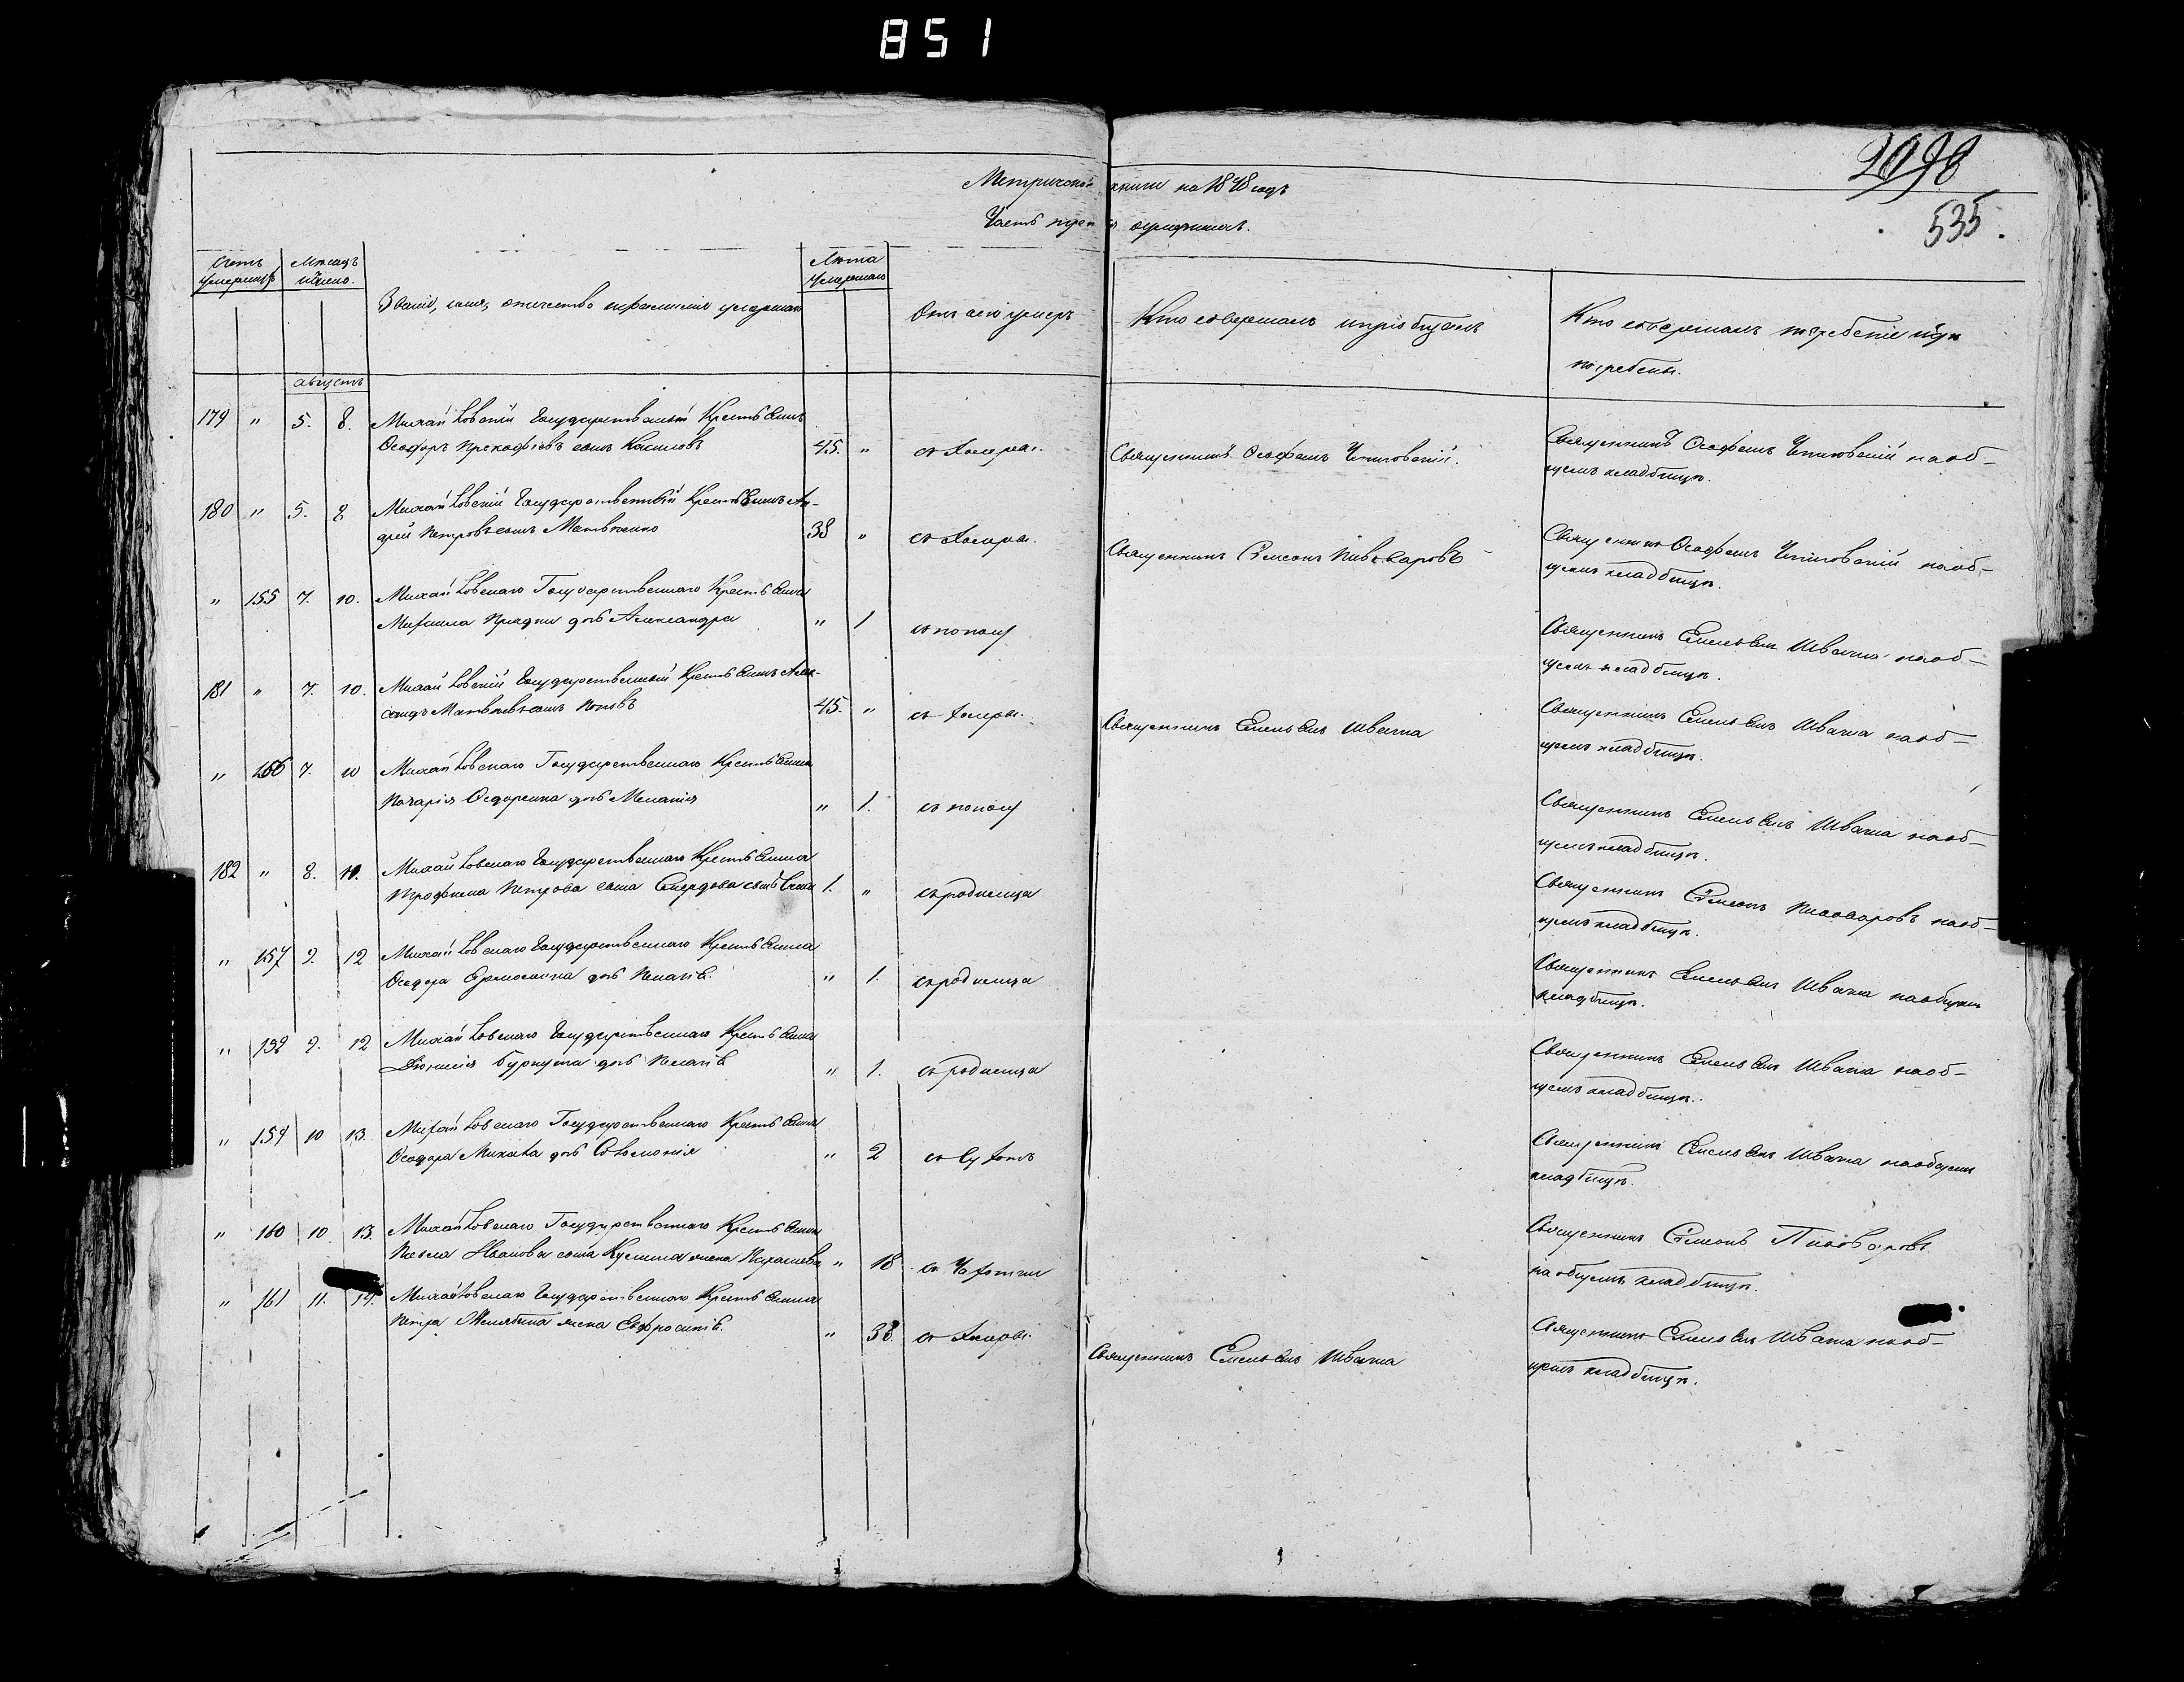 851
2098
535.
Метрической книги на 1848 годъ
Часть третія о умершихъ.
Счетъ умершихъ
Мѣсяцъ и число.
Званіе, имя, отчество и фамилія умершаго
Лѣта умершаго
Отъ чего умеръ
Кто совершалъ и пріобщалъ
Кто совершалъ погребеніе и гдѣ
погребены.
августъ
179 " 5. 8. Михайловскій Государственный Крестьянинъ
Ѳеодоръ Прокофіевъ сынъ 45. " отъ Холеры. Священникъ Ѳеофанъ Священникъ Ѳеофанъ на об-
щемъ кладбищѣ.
180 " 5. 8 Михайловскій Государственный Крестьянинъ Ан-
дрей Петровъ сынъ Матвѣенко 38 " отъ Холеры. Священникъ Сѵмеонъ Пивоваровъ Священникъ Ѳеофанъ на об-
щемъ кладбищѣ.
" 155 7. 10. Михайловскаго Государственнаго Крестьянина
Михаила дочь Александра " 1 отъ поносу Священникъ Емельянъ Швачка на об-
щемъ кладбищѣ.
181 " 7. 10. Михайловскій Государственный Крестьянинъ Алек-
сандръ Матвѣевъ сынъ Поповъ 45. " отъ Холеры. Священникъ Емельянъ Швачка Священникъ Емельянъ Швачка на об-
щемъ кладбищѣ.
" 156 7. 10 Михайловскаго Государственнаго Крестьянина
Захарія Ѳедоренка дочь Меланія " 1. отъ поносу Священникъ Емельянъ Швачка на об-
щемъ кладбищѣ.
182 " 8. 11. Михайловскаго Государственнаго Крестьянина
Трофима Петрова сына сынъ 1. " отъ родимца Священникъ Сѵмеонъ Пивоваровъ на об-
щемъ кладбищѣ.
" 157 9. 12 Михайловскаго Государственнаго Крестьянина
Ѳеодора дочь Пелагія. " 1. отъ родимца Священникъ Емельянъ Швачка на общемъ
кладбищѣ.
" 158 9. 12 Михайловскаго Государственнаго Крестьянина
Діонисія дочь Пелагія " 1. отъ родимца Священникъ Емельянъ Швачка на об-
щемъ кладбищѣ.
" 159 10 13. Михайловскаго Государственнаго Крестьянина
Ѳеодора дочь Соломонія " 2 отъ Сухотъ Священникъ Емельянъ Швачка на общемъ
кладбищѣ.
" 160 10. 13. Михайловскаго Государственнаго Крестьянина
Павла Иванова сына жена " 18 отъ Чахотки Священникъ Сѵмеонъ Пивоваровъ
на общемъ кладбищѣ.
" 161 11. 14. Михайловскаго Государственнаго Крестьянина
Петра жена Евфросинія. " 38. отъ Холеры. Священникъ Емельянъ Швачка Священникъ Емельянъ Швачка на об-
щемъ кладбищѣ.